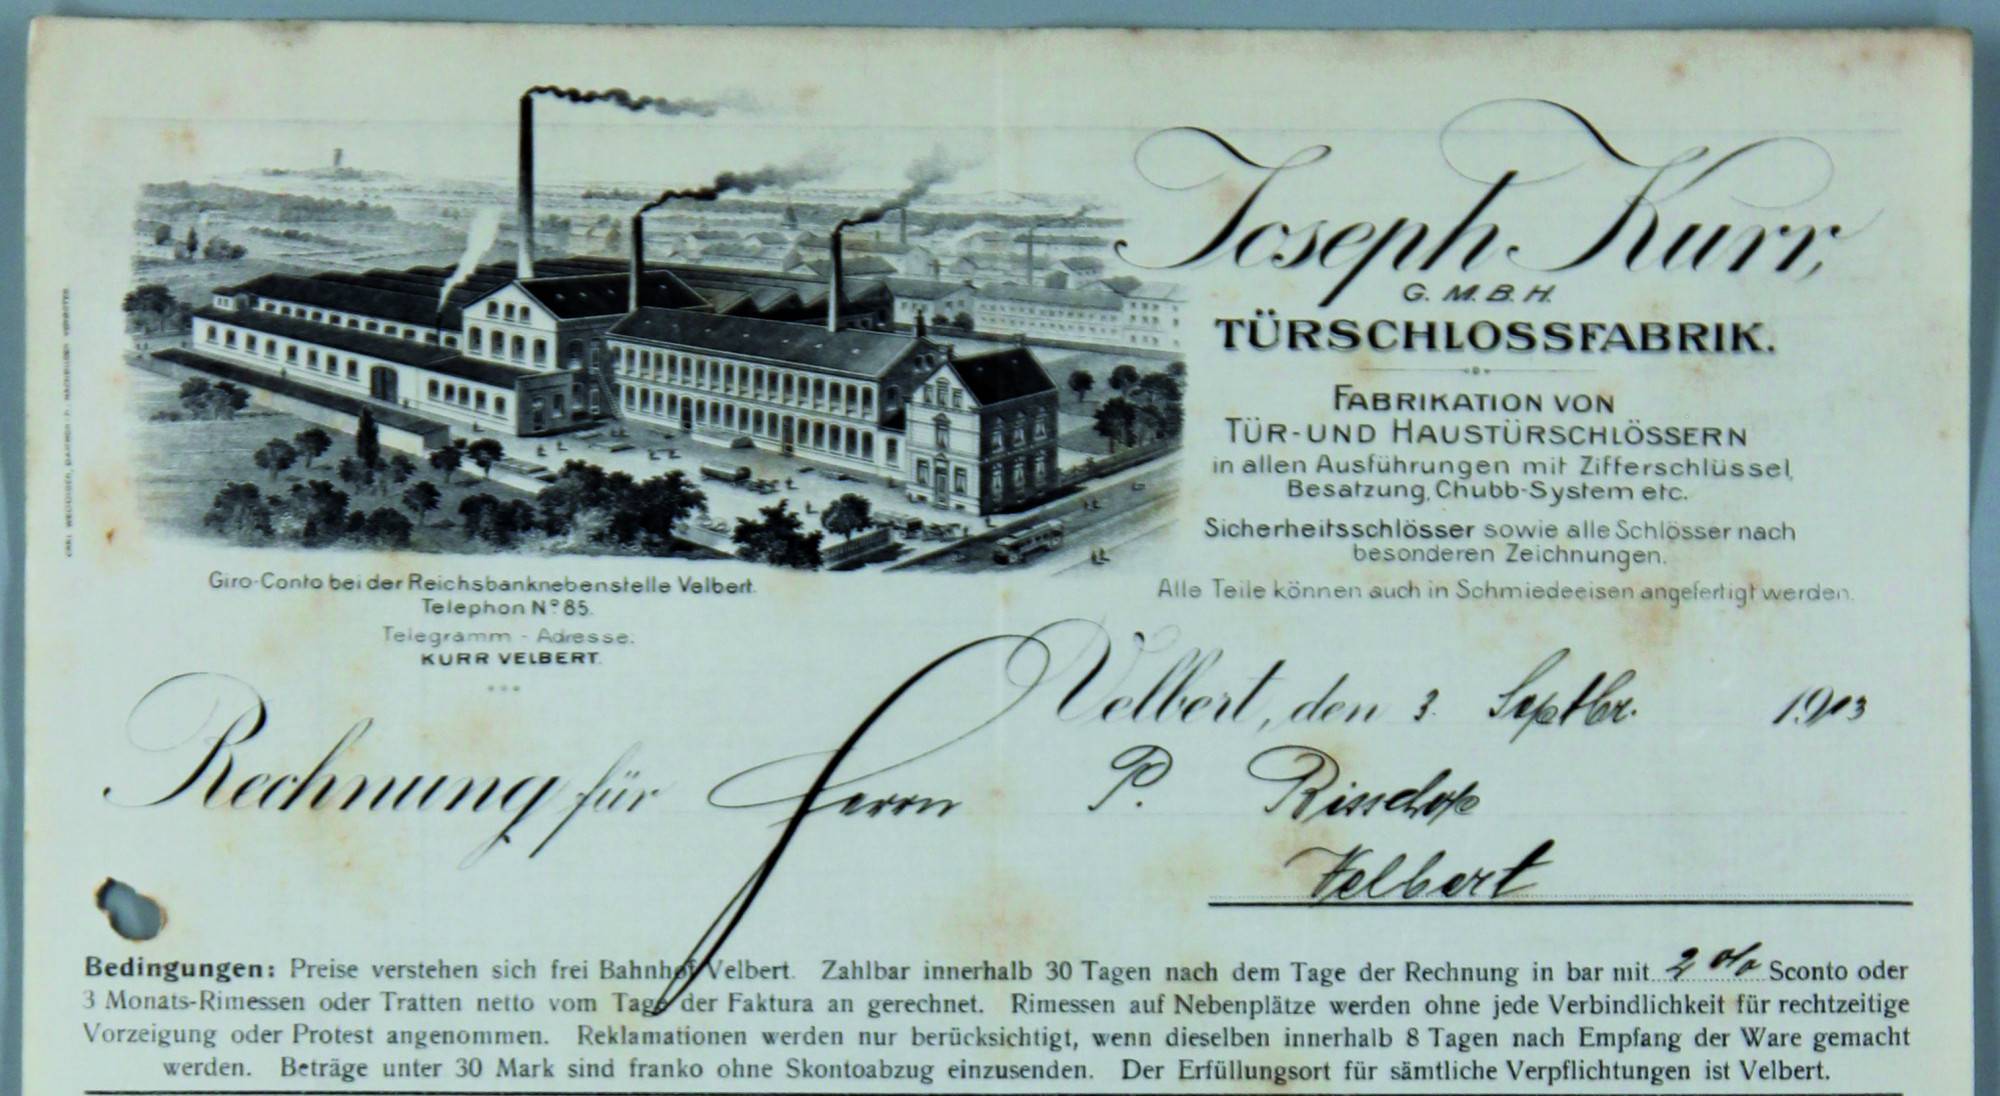 Joseph Kurr,
G. M. B. H.
TÜRSCHLOSSFABRIK.
FABRIKATION VON
TÜR-UND HAUSTÜRSCHLÖSSERN
in allen Ausführungen mit Zifferschlüssel,
Besatzung, Chubb-System etc.
Sicherheitsschlösser sowie alle Schlösser nach
besonderen Zeichnungen.
Alle Teile können auch in Schmiedeeisen angefertigt werden.
Giro-Conto bei der Reichsbanknebenstelle Velbert.
Telephon Nº 85.
Telegramm - Adresse:
KURR VELBERT.
Velbert, den 3. Septbr. 1913
Rechnung für Herrn P.
Velbert
Bedingungen: Preise verstehen sich frei Bahnhof Velbert. Zahlbar innerhalb 30 Tagen nach dem Tage der Rechnung in bar mit 2 % Sconto oder
3 Monats-Rimessen oder Tratten netto vom Tage der Faktura an gerechnet. Rimessen auf Nebenplätze werden ohne jede Verbindlichkeit für rechtzeitige
Vorzeigung oder Protest angenommen. Reklamationen werden nur berücksichtigt, wenn dieselben innerhalb 8 Tagen nach Empfang der Ware gemacht
werden. Beträge unter 30 Mark sind franko ohne Skontoabzug einzusenden. Der Erfüllungsort für sämtliche Verpflichtungen ist Velbert.